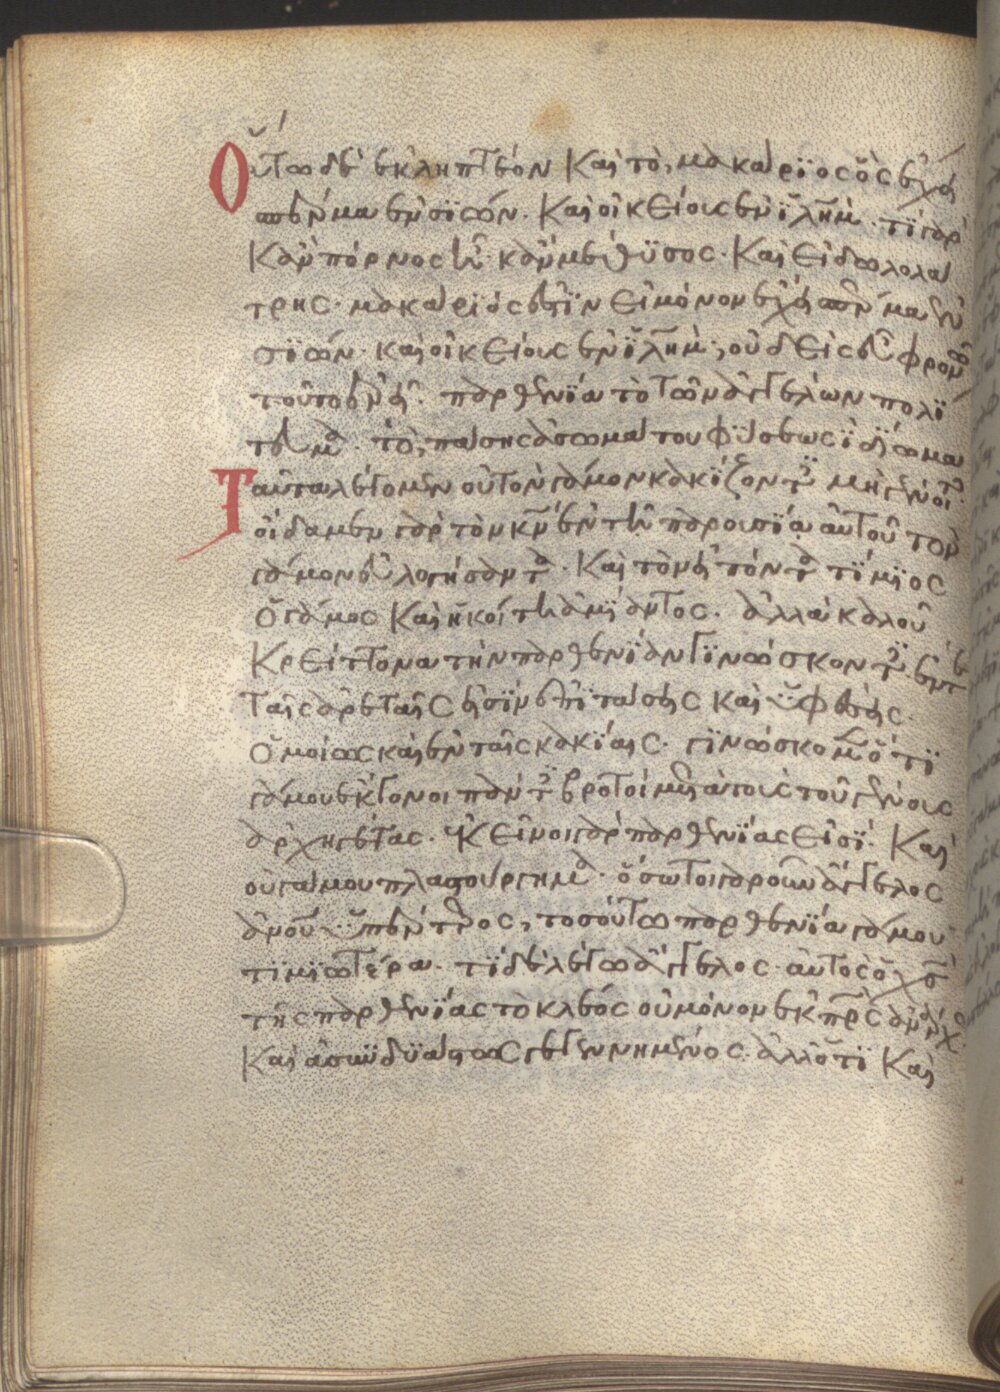 Οὕτω δὲ ἐκληπτέον καὶ τὸ, μακάριος ὃς ἔχει
σπέρμα ἐν σϊών. καὶ οἰκείους ἐν ϊλημ. τί γὰρ
κἂν πόρνος ἦ. κἂν μέθυσος. καὶ εἰδωλολά
τρης. μακάριός ἐστϊν εἰ μόνον ἔχει σπέρμα ἐν
σϊών. καὶ οἰκείους ἐν ϊλημ, οὐδεὶς εὖ φρονῶν
τοῦτο ἐρεῖ. παρθενΐα τὸ τῶν ἀγγέλων πολΐ
τευμα. τὸ, πάσης ἀσωμάτου φύσεως ϊδΐωμα
Ταῦτα λέγομεν οὐ τὸν γάμον κακΐζοντες μὴ γένοιτο
οἴδαμεν γὰρ τὸν κν ἐν τῆ παροισΐα αὐτοῦ τὸν
γάμον εὐλογήσαντα. καὶ τὸν εἰπόντα τΐμϊος
ὁ γάμος καὶ ἡ κοίτη ἀμΐαντος. ἀλλὰ καλοῦ
κρείττονα τὴν παρθενΐαν γϊνώσκοντες. ἔν τε
ταῖς ἀρεταῖς εἰσὶν ἐπϊτάσεις καὶ ὑφέσεις.
ὁμοίως καὶ ἐν ταῖς κακΐαις. γϊνώσκομεν ὅτϊ
γάμου ἔκγονοι πάντες βροτοὶ μετὰ τοὺς τοῦ γένους
ἀρχηγέτας. ἐκεῖνοι γὰρ παρθενΐας εἰσΐ. καὶ
οὐ γάμου πλαστούργημα. ὅσω τοιγαροῦν ἄγγελος
ἀνου ὑπέρτερος, τοσούτω παρθενΐα γάμου
τϊμϊωτέρα. τΐ δὲ λέγω ἄγγελος. αὐτὸς ὁ χς
τῆς παρθενΐας τὸ κλέος οὐ μόνον ἐκ πρς ἀνάρχως
καὶ ἀσυνδυάστως γεγεννημένος. ἀλλ' ὅτϊ καὶ